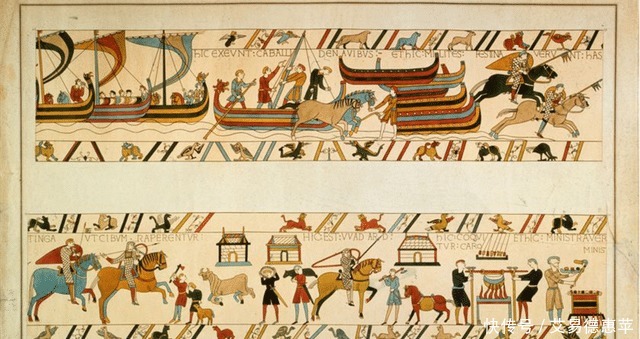 HIC EXEVNT: CABALLI DENAVIBVS: ETHIC: MILITES: FESTINAVERVNT: HAS
TINGA VTCIBVM RAPERENTVR HIC EST: VVADARD: HIC: COQVITVR: CARO ETHIC: MINISTRAVER
MINIS
快传号 / 艾易德惠苹